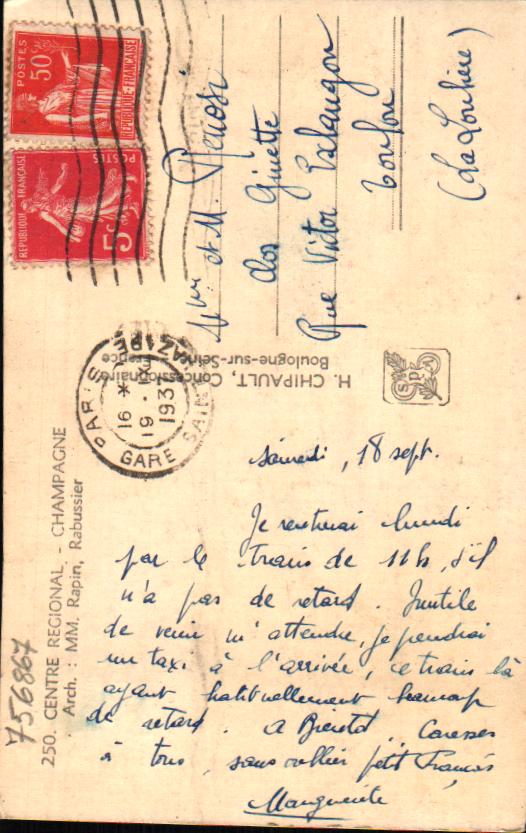 250. CENTRE REGIONAL. - CHAMPAGNE
Arch. : MM. Rapin, Rabussier
756867
POSTES
50c
REPUBLIQUE-FRANCAISE
REPUBLIQUE FRANCAISE
POSTES
5c
PARIS
GARE SAINT LAZARE
16 *
19 - IX
1937
H. CHIPAULT, Concessionnaire
Boulogne-sur-Seine - France
Mme et M.
Clos Ginette
Rue Victor Esclangon
Toulon
(La Loubière)
samedi, 18 sept.
Je rentrerai lundi
par le train de 11h, s'il
n'a pas de retard. Inutile
de venir m'attendre, je prendrai
un taxi à l'arrivée, ce train là
ayant habituellement beaucoup
de retard. A Bientôt. Caresses
à tous, sans oublier petit Francis
Marguerite